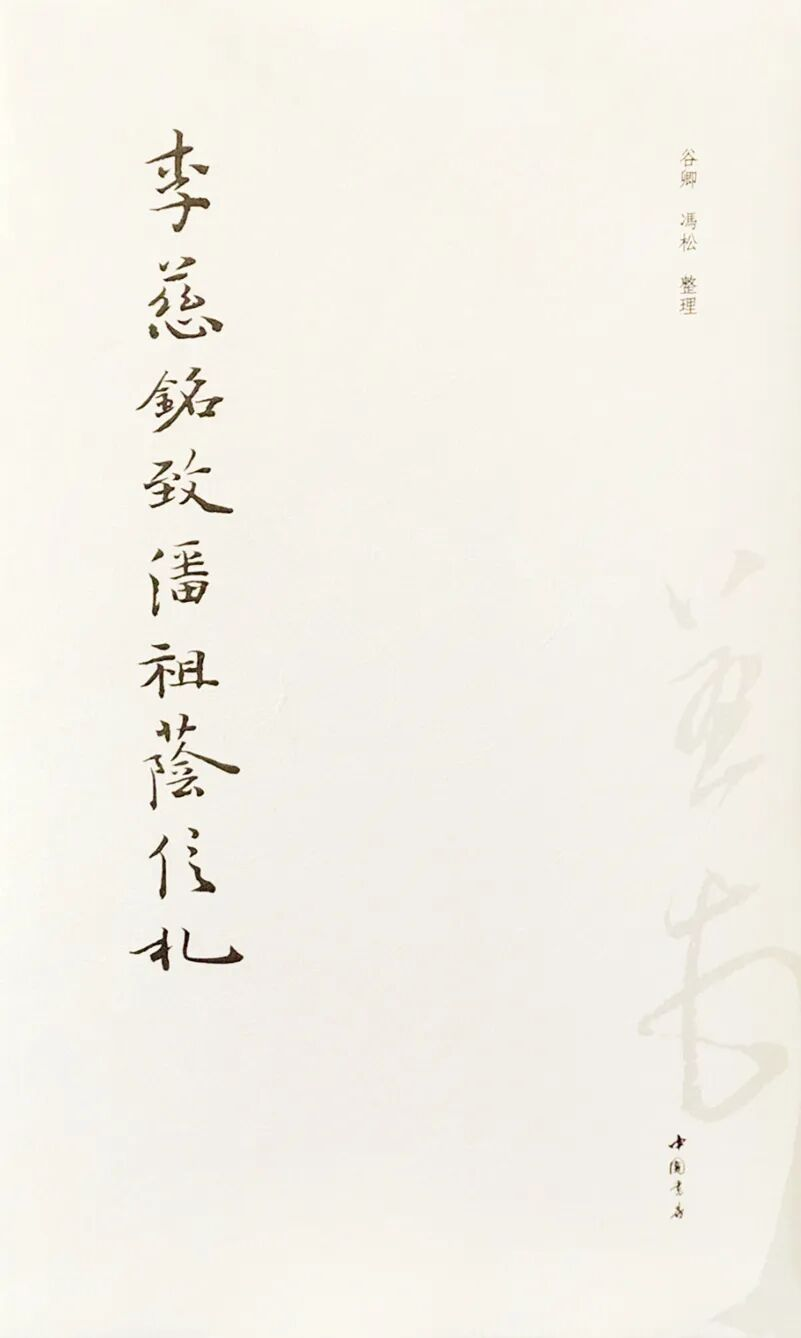 谷卿 馮松 整理
李慈銘致潘祖蔭信札
中國書店